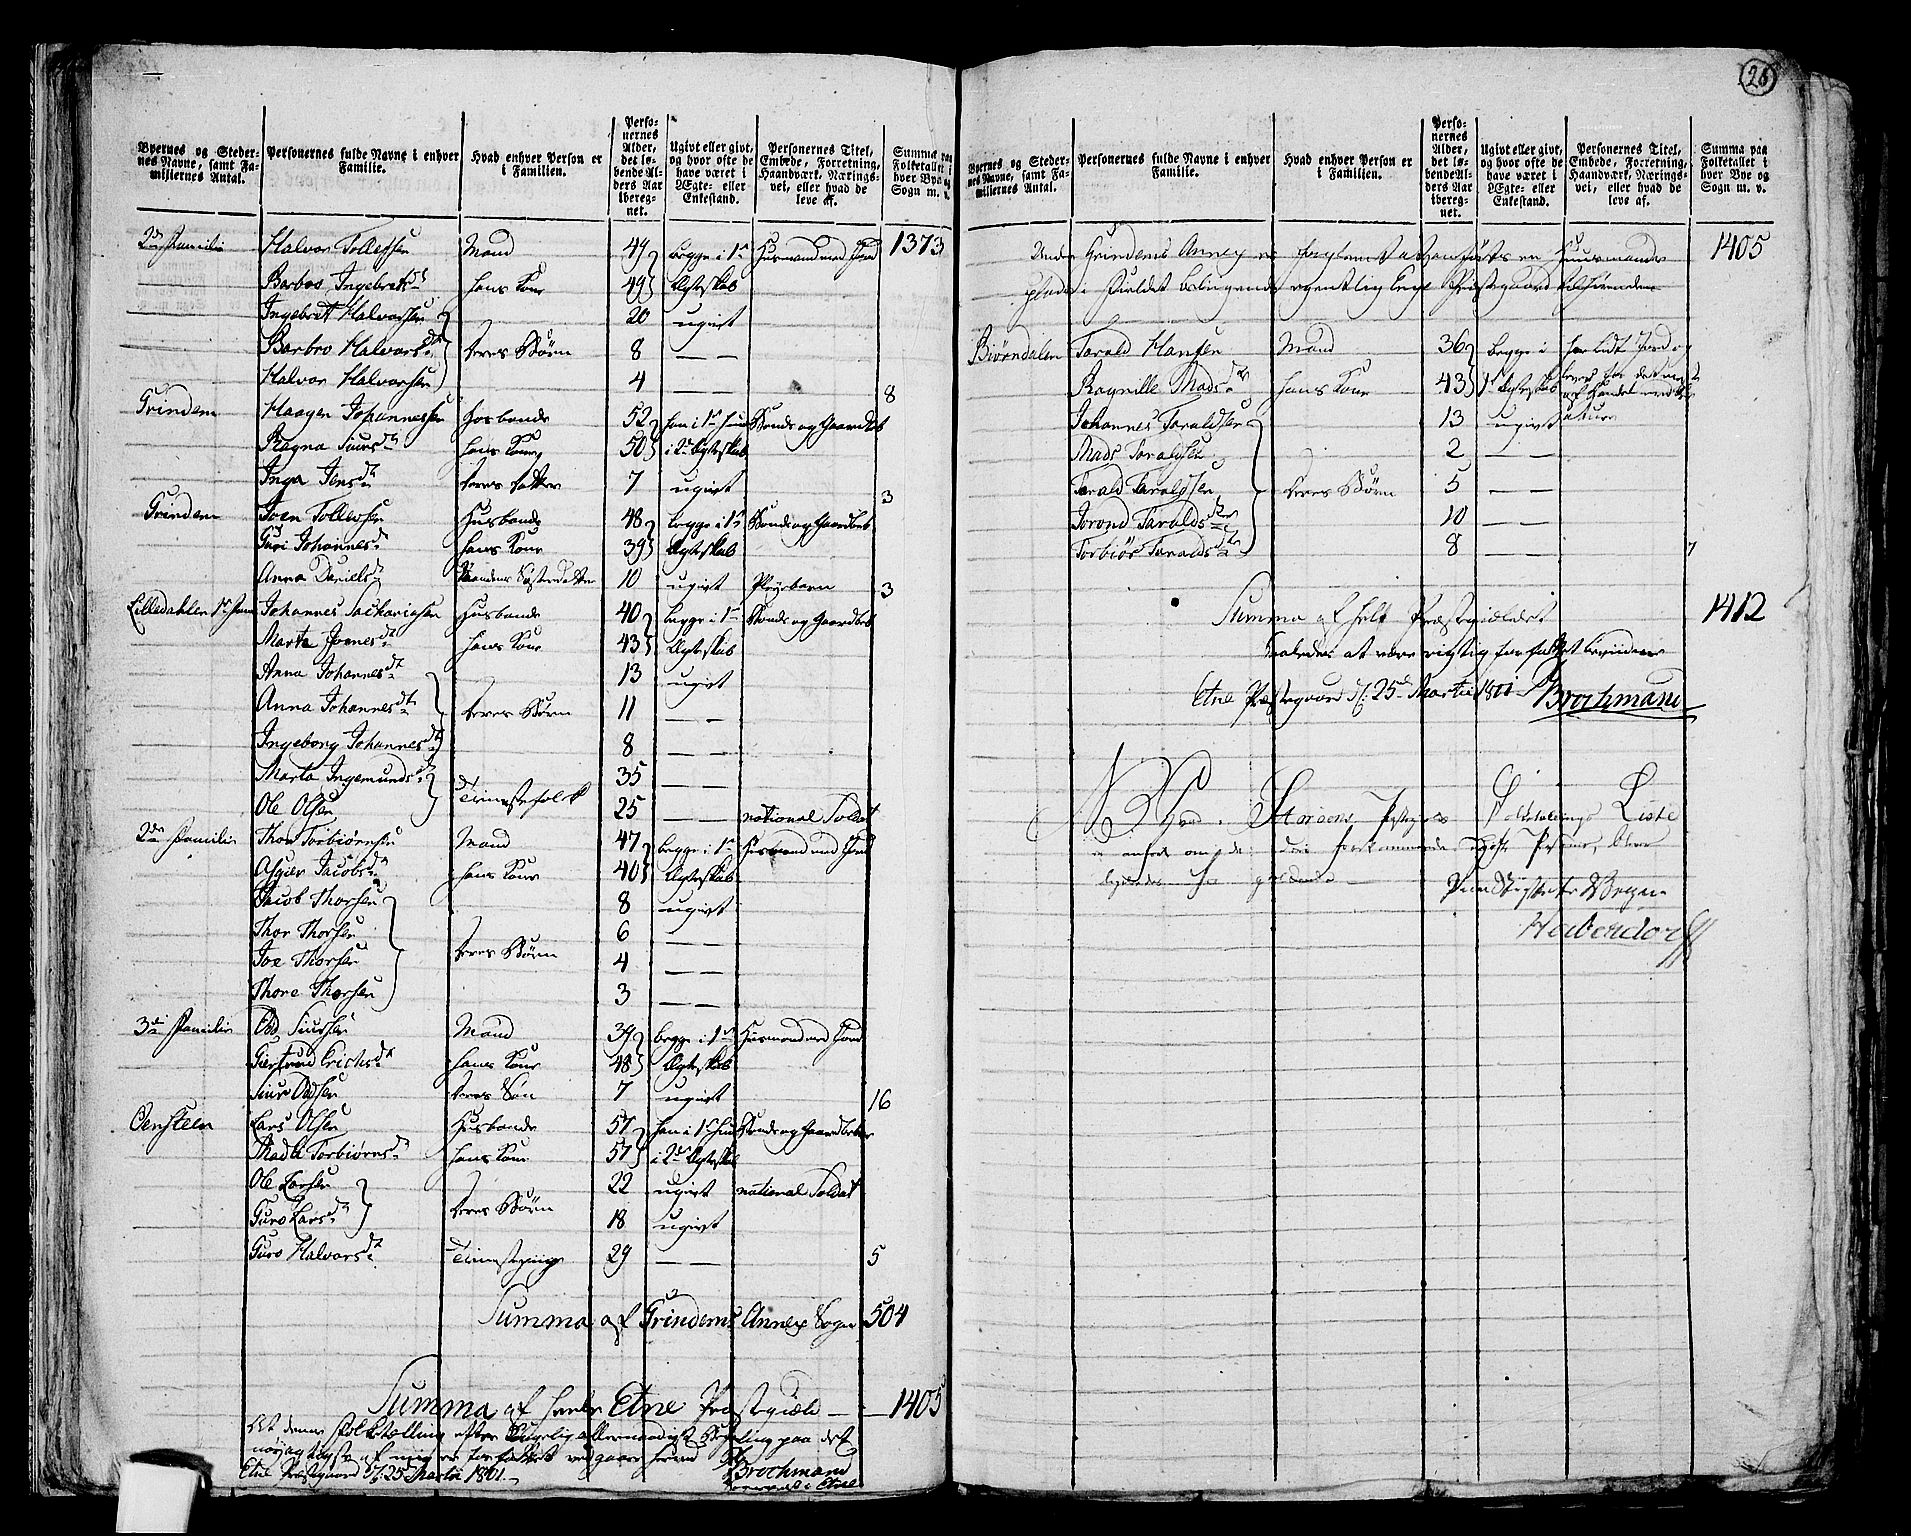 26
Byernes og Stedernes Navne, samt Familiernes Antal.
Personernes fulde Navne i enhver Familie.
Hvad enhver Person er i Familien.
Personernes Alder, det løbende Alders Aar iberegnet.
Ugivt eller givt, og hvor ofte de have været i Ægte- eller Enkestand.
Personernes Titel, Embede, Forretning, Haandværk, Næringsvei, eller hvad de leve af.
Summa paa Folketallet i hver Bye og Sogn m. v.
2de Familie Halvor Tollefsen Mand 49 begge i 1ste Huusmand med Jord 1373
Barbro Ingebretsdt hans Kone 49 Ægteskab
Ingebret Halvorsen 20 ugivt
Barbro Halvorsdt deres Børn 8 — —
Halvor Halvorsen 4 — — 8
Grindem Haagen Johannessen Hosbonde 52 han i 1ste hun Bonde og Gaardbeb
Ragna Siursdt hans Kone 50 i 2det Ægteskab
Inga Jensdt deres Datter 7 ugivt 3
Grindem Joen Tollevsen Husbonde 48 begge i 1ste Bonde og Gaardbeb
Guri Johannesdt hans Kone 39 Ægteskab
Anna Danielsdt Mandens Søsterdatter 10 ugivt Pleyebarn 3
Lilledahlen 1ste Fam Johannes Sachariasen Husbonde 40 begge i 1ste Bonde og Gaardbeb
Marta Joensdt hans Kone 43 Ægteskab
Anna Johannesdt 13 ugivt
Anna Johannesdt deres Børn 11 — —
Ingeborg Johannesdt 8 — —
Marta Ingemundsdt 35 — —
Ole Olsen Tienestefolk 25 — — national Soldat
2de Familie Thor Torbiørnsen Mand 47 begge i 1ste Huusmand med Jord
Asgier Jacobsdt hans Kone 40 Ægteskab
Jacob Thorsen 8 ugivt
Thor Thorsen 6 — —
Joe Thorsen deres Børn 4 — —
Thore Thorsen 3 — —
3die Familie Odd Siursen Mand 39 begge i 1ste Huusmand med Jord
Giertrud Erichsdt hans Kone 48 Ægteskab
Siur Oddsen deres Søn 7 ugivt 16
Øensteen Lars Olsen Husbonde 57 han i 1ste hun Bonde og Gaardbeboer
Madle Torbiørnsdt hans Kone 57 i 2det Ægteskab
Ole Larsen 22 ugivt national Soldat
Guro Larsdt deres Børn 18 ugivt
Guro Halvorsdt Tienestepiige 29 — — 5
Summa af Grindems Annex Sogn 504
Summa af heele Etne Præstegield — — 1405
At denne Folketælling efter Kongelig allernaadigst Befaling paa det
nøyagtigste af mig er forfattet vedgaar herved
Etne Præstegaard d. 25 Martii 1801. Brochmand
Sogneprest i Etne
Byernes og Stedernes Navne, samt Familiernes Antal.
Personernes fulde Navne i enhver Familie.
Hvad enhver Person er i Familien.
Personernes Alder, det løbende Alders Aar iberegnet.
Ugivt eller givt, og hvor ofte de have været i Ægte- eller Enkestand.
Personernes Titel, Embede, Forretning, Haandværk, Næringsvei, eller hvad de leve af.
Summa paa Folketallet i hver Bye og Sogn m. v.
Under Grindems Annex er forglemt at anføres en Huusmands 1405
plads i Fieldet beliggende egentlig Enge Præstegaard tilhørende
Biørndalen Tarald Hansen Mand 36 begge i har lidt Jord og
Ragnille Madsdt hans Kone 43 1ste Ægteskab lever for det meste
Johannes Taraldsen 13 ugivt
Mads Taraldsen 2 — —
Tarald Taraldsen deres Børn 5 — —
Jorond Taraldsdt 10 — —
Torbiør Taraldsdt 8 — — 7
Summa af helt Præstegieldet 1412
Saaledes at være rigtig forfattet bevidner
Etne Præstegaard d. 25de Martii 1801 Brochmand
Folketællings Liste
er anført om de forekommende Personer, bliver
Heiberdorff